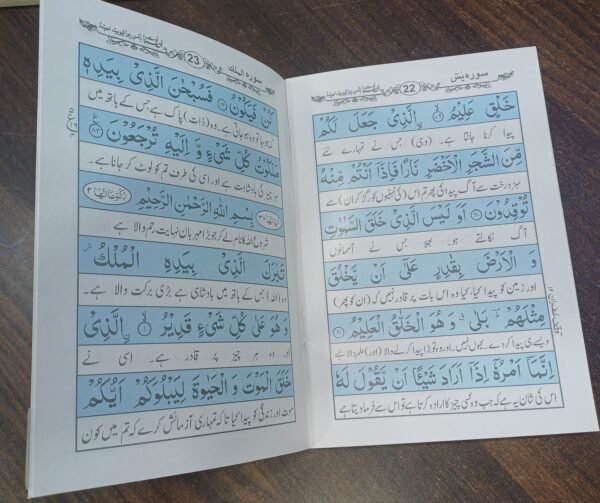 سورہ یٰس
22
خَلْقٍ عَلِيْمُ ۙ﴿٧٩﴾ الَّذِيْ جَعَلَ لَكُمْ
پیدا کرنا جانتا ہے۔ (وہی) جس نے تمہارے لئے
مِّنَ الشَّجَرِ الْاَخْضَرِ نَارًا فَاِذَآ اَنْتُمْ مِّنْهُ
سبز درخت سے آگ پیدا کی پھر تم اس (کی ٹہنیوں کو رگڑ کر ان) سے
تُوْقِدُوْنَ ﴿٨٠﴾ اَوَ لَيْسَ الَّذِيْ خَلَقَ السَّمٰوٰتِ
آگ نکالتے ہو۔ بھلا جس نے آسمانوں
وَ الْاَرْضَ بِقٰدِرٍ عَلٰٓى اَنْ يَّخْلُقَ
اور زمین کو پیدا کیا، کیا وہ اس بات پر قادر نہیں کہ (ان کو پھر)
مِثْلَهُمْ ؕ بَلٰى ۗ وَ هُوَ الْخَلّٰقُ الْعَلِيْمُ ﴿٨١﴾
ویسے ہی پیدا کر دے۔ کیوں نہیں۔ اور وہ تو بڑا پیدا کرنے والا (اور) علم والا ہے
اِنَّمَآ اَمْرُهٗٓ اِذَآ اَرَادَ شَيْـًٔا اَنْ يَّقُوْلَ لَهٗ
اس کی شان یہ ہے کہ جب وہ کسی چیز کا ارادہ کرتا ہے تو اس سے فرما دیتا ہے
سورہ الملک
23
كُنْ فَيَكُوْنُ ﴿٨٢﴾ فَسُبْحٰنَ الَّذِيْ بِيَدِهٖ
کہ ہو جا تو وہ ہو جاتی ہے۔ وہ (ذات) پاک ہے جس کے ہاتھ میں
مَلَكُوْتُ كُلِّ شَيْءٍ وَّ اِلَيْهِ تُرْجَعُوْنَ ﴿٨٣﴾
ہر چیز کی بادشاہت ہے اور اسی کی طرف تم کو لوٹ کر جانا ہے۔
اٰیاتھا ۳۰ بِسْمِ اللّٰهِ الرَّحْمٰنِ الرَّحِيْمِ رکوعاتھا ۲
شروع اللہ کا نام لے کر جو بڑا مہربان نہایت رحم والا ہے
تَبٰرَكَ الَّذِيْ بِيَدِهِ الْمُلْكُ
وہ (اللہ) جس کے ہاتھ میں بادشاہی ہے بڑی برکت والا ہے۔
وَ هُوَ عَلٰى كُلِّ شَيْءٍ قَدِيْرُ ﴿١﴾ الَّذِيْ
اور وہ ہر چیز پر قادر ہے۔ اسی نے
خَلَقَ الْمَوْتَ وَ الْحَيٰوةَ لِيَبْلُوَكُمْ اَيُّكُمْ
موت اور زندگی کو پیدا کیا تا کہ تمہاری آزمائش کرے کہ تم میں کون